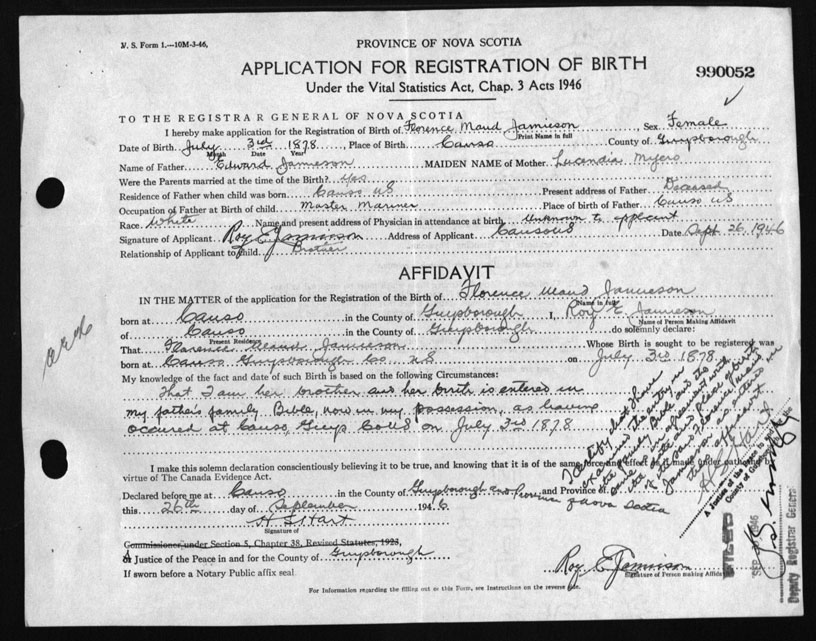 N. S. Form 1.—10M-3-46,
PROVINCE OF NOVA SCOTIA
APPLICATION FOR REGISTRATION OF BIRTH
990052
Under the Vital Statistics Act, Chap. 3 Acts 1946
TO THE REGISTRAR GENERAL OF NOVA SCOTIA
I hereby make application for the Registration of Birth of Florence Maud Jamieson, Sex Female
Print Name in full
Date of Birth July 3rd 1878, Place of Birth Canso County of Guysborough
Month Date Year
Name of Father Edward Jamieson MAIDEN NAME of Mother Lucendia Myers
Were the Parents married at the time of the Birth? Yes
Residence of Father when child was born Canso NS Present address of Father Deceased
Occupation of Father at Birth of child Master Mariner Place of birth of Father Canso NS
Race White Name and present address of Physician in attendance at birth Unknown to applicant
Signature of Applicant Roy E Jamieson Address of Applicant Canso NS Date Sept 26, 1946
Relationship of Applicant to child Brother
AFFIDAVIT
IN THE MATTER of the application for the Registration of the Birth of Florence Maud Jamieson
Name in full
born at Canso in the County of Guysborough I, Roy E. Jamieson
Name of Person Making Affidavit
of Canso in the County of Guysborough do solemnly declare:
Present Residence
That Florence Maud Jamieson Whose Birth is sought to be registered was
born at Canso Guysborough Co. NS on July 3rd 1878.
My knowledge of the fact and date of such Birth is based on the following Circumstances:
That I am her brother and her birth is entered in
my father's family Bible, now in my possession, as having
occured at Canso, Guys Co NS on July 3rd 1878
I certify that I have
examined the entry in
the family Bible and the
same is in agreement with
the date and place of birth
of the said Florence Maud
Jamieson as stated in
this affidavit
H L Hart
A Justice of the Peace in
County of Guysborough
I make this solemn declaration conscientiously believing it to be true, and knowing that it is of the same force and effect as if made under oath by
virtue of The Canada Evidence Act.
Declared before me at Canso in the County of Guysborough and Province of Nova Scotia
this 26th day of September 1946
H L Hart
Signature of
Commissioner under Section 5, Chapter 38, Revised Statutes, 1923,
A Justice of the Peace in and for the County of Guysborough
If sworn before a Notary Public affix seal
Roy E Jamieson
Signature of Person making Affidavit
Deputy Registrar General
For Information regarding the filling out of this Form, see Instructions on the reverse side.